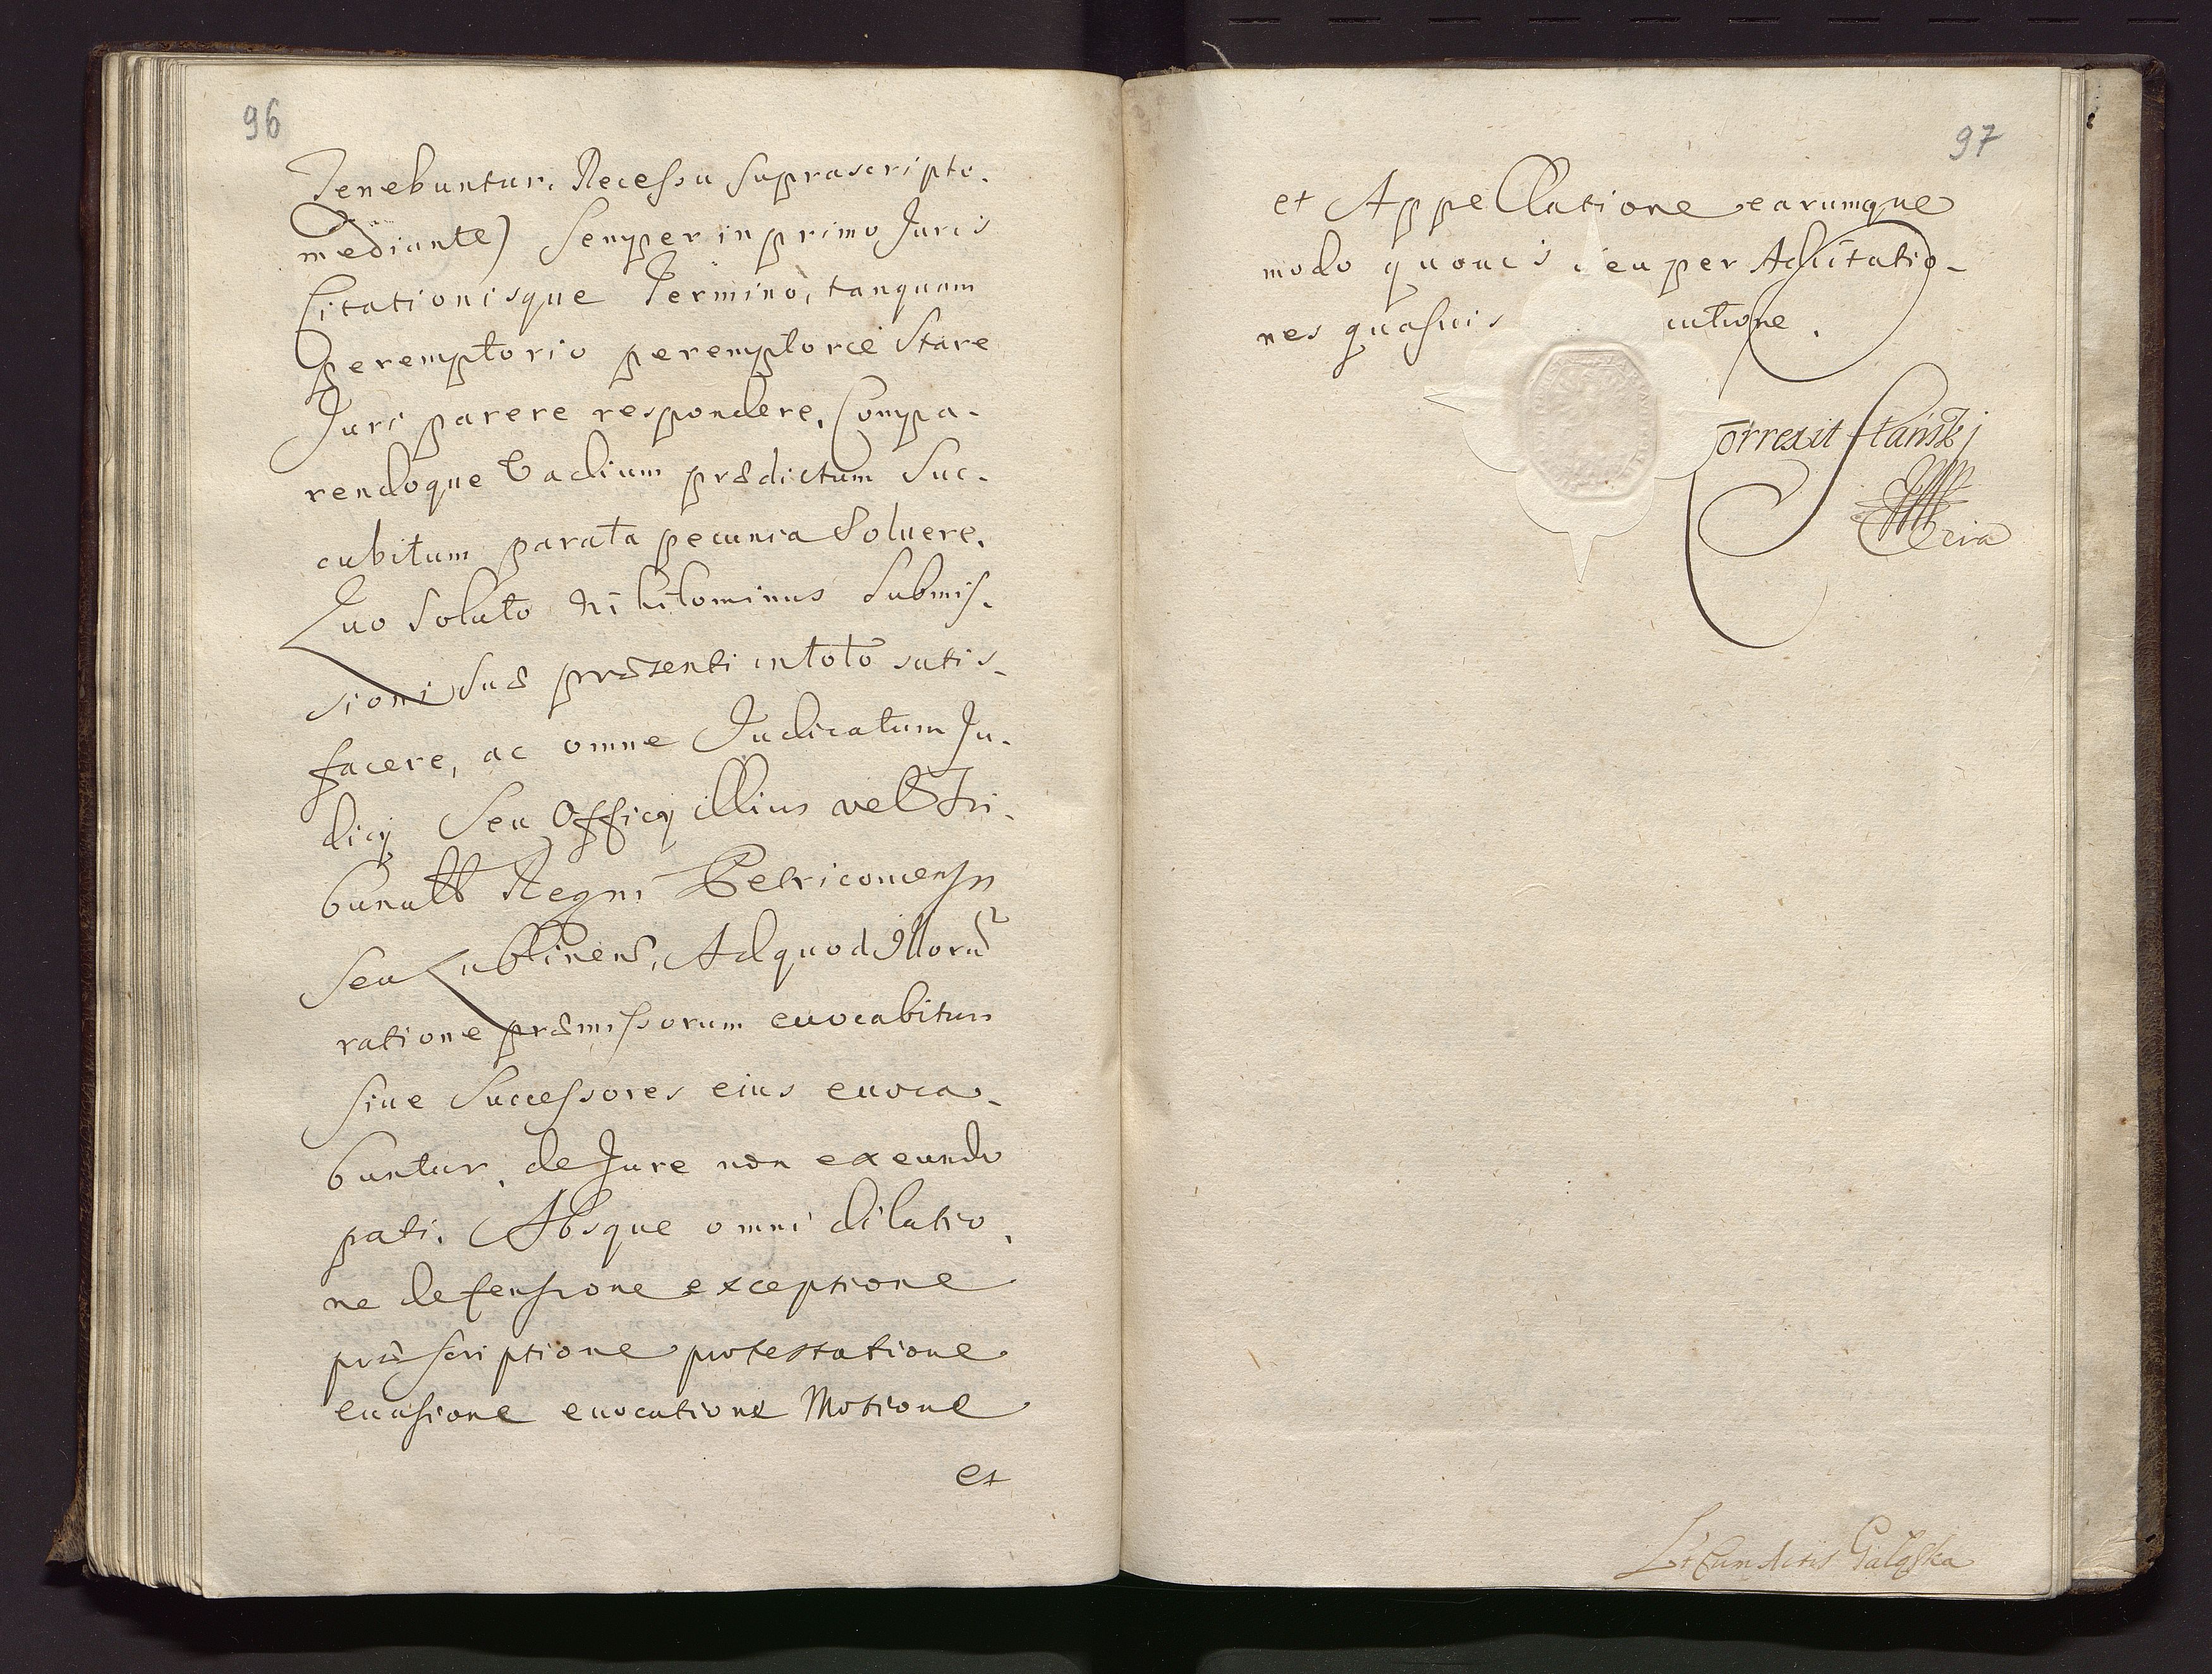 96
Tenebuntur, Recessu suprascripto.
mediante) Semper in primo Juris
Citationisque Termino, tanquam
peremptorio peremptorie Stare
Juri parere respondere, Compa-
rendoque Vadium prædictum Suc-
cubitum parata pecunia Soluere,
Quo Soluto Nihilominus Submis-
sioni Suæ præsenti in toto satis-
facere, ac omne Judicatum Ju-
dicÿ Seu Officÿ illius vel Tri-
bunal Regni Petricouien
Seu Lublinens, Ad quod Illorũ
ratione præmissorum euocabitur
siue Successores eius euoca-
buntur, de Jure non exeundo
pati. Absque omni dilatio,
ne defensione exceptione
præscriptione protestatione
euasione euocatione Motione
et
97
et Appellatione earumque
modo quouis seu per Adcitatio-
nes quasuis cutione.
orrexit
Lt Cum Actis